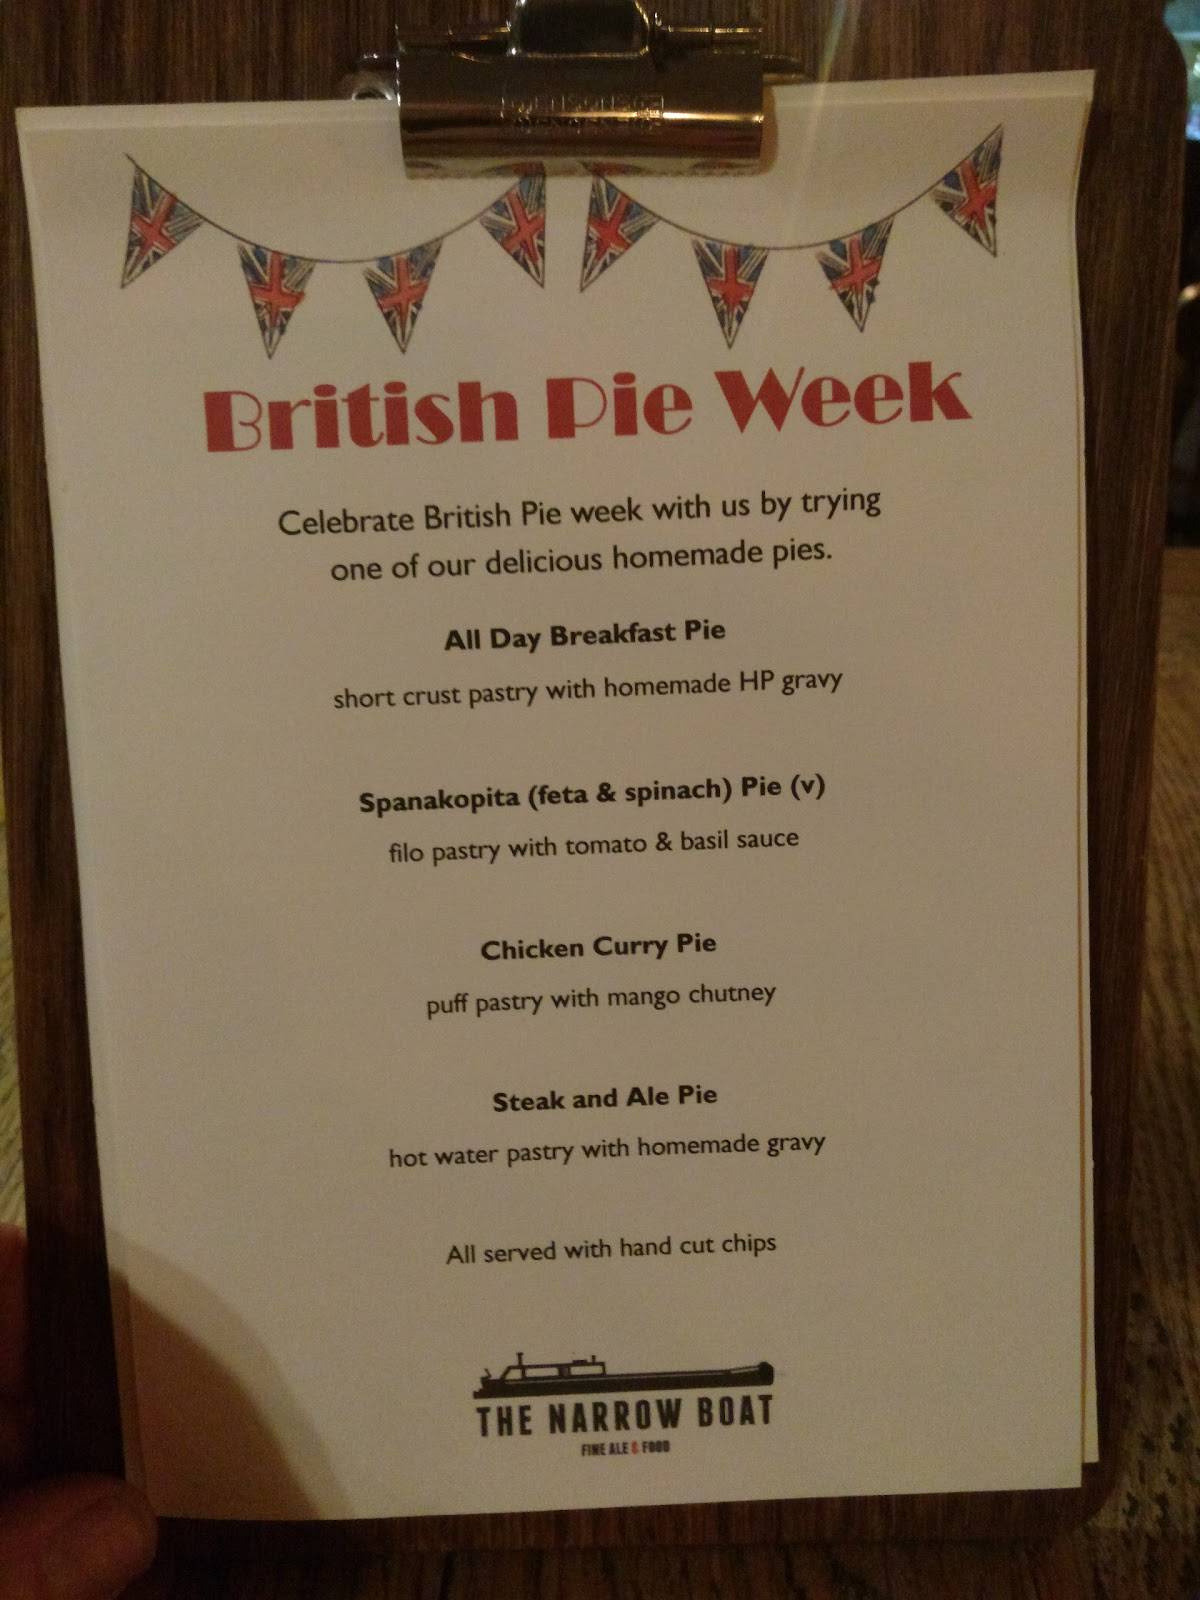 British Pie Week
Celebrate British Pie week with us by trying
one of our delicious homemade pies.
All Day Breakfast Pie
short crust pastry with homemade HP gravy
Spanakopita (feta & spinach) Pie (v)
filo pastry with tomato & basil sauce
Chicken Curry Pie
puff pastry with mango chutney
Steak and Ale Pie
hot water pastry with homemade gravy
All served with hand cut chips
THE NARROW BOAT
FINE ALE & FOOD